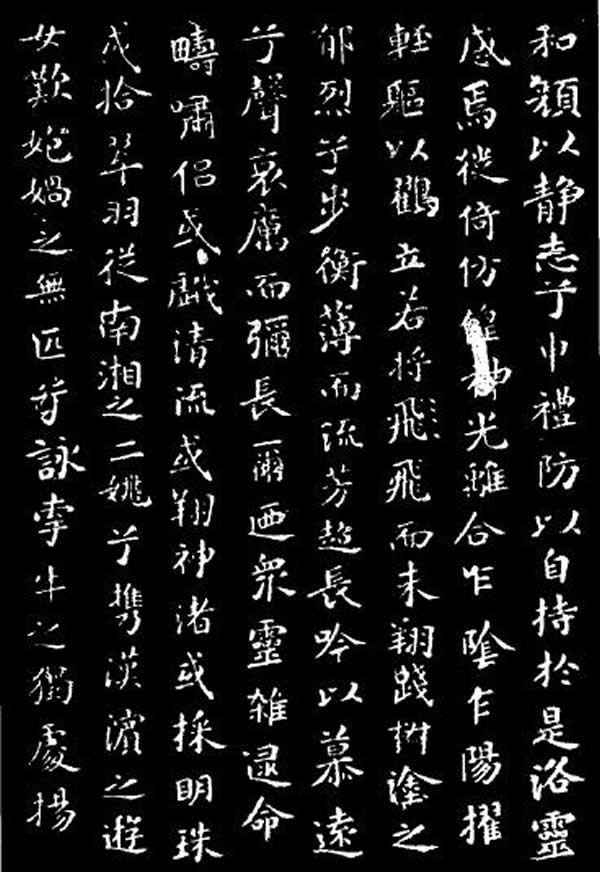 和顏以静志兮申禮防以自持於是洛靈
感焉徙倚仿偟神光離合乍陰乍陽擢
輕軀以鶴立若将飛飛而未翔踐椒塗之
郁烈兮步衡薄而流芳超長吟以慕遠
兮聲哀厲而彌長爾迺眾靈雜遝命
疇嘯侶或戲清流或翔神渚或採明珠
或拾翠羽從南湘之二姚兮携漢濱之遊
女歎㚿媧之無匹兮詠牽牛之獨處揚